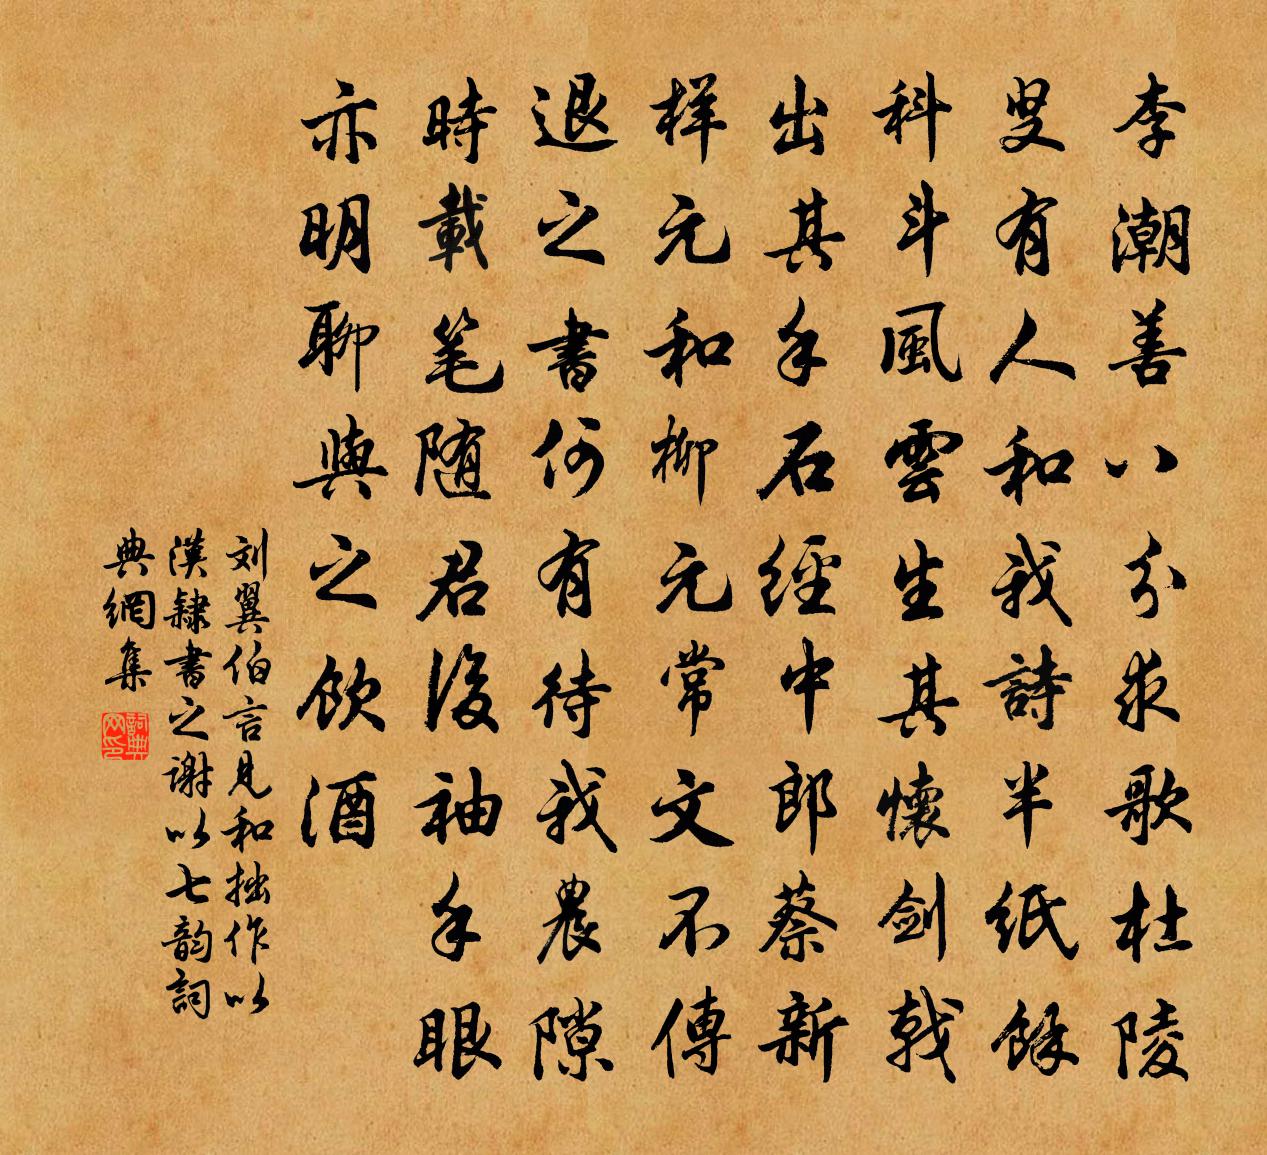 李潮善八分求歌杜陵
叟有人和我詩半紙餘
科斗風雲生其懷劍戟
出其手石經中郎蔡新
樣元和柳元常文不傳
退之書何有待我農隙
時載笔随君後袖手眼
亦明聊與之飲酒
刘翼伯言見和拙作以
漢隸書之謝以七韵詞
典網集
詞典网印